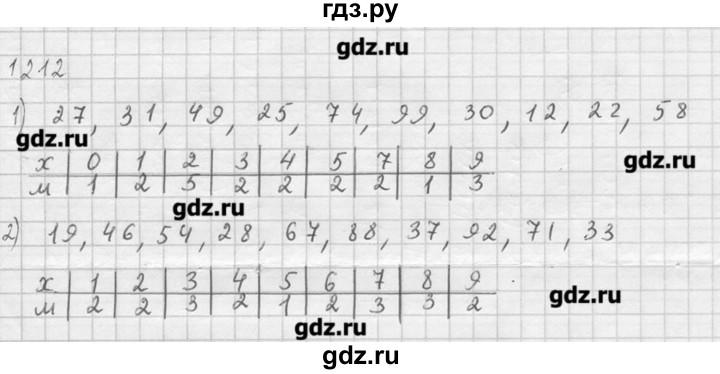 гдз.ру
gdz.ru
1212
1) 27, 31, 49, 25, 74, 99, 30, 12, 22, 58
gdz.ru
gdz.ru
х 0 1 2 3 4 5 7 8 9
м 1 2 5 2 2 2 2 1 3
gdz.ru
2) 19, 46, 54, 28, 67, 88, 37, 92, 71, 33
х 1 2 3 4 5 6 7 8 9
м 2 2 3 2 1 2 3 3 2
gdz.ru
gdz.ru
gdz.ru